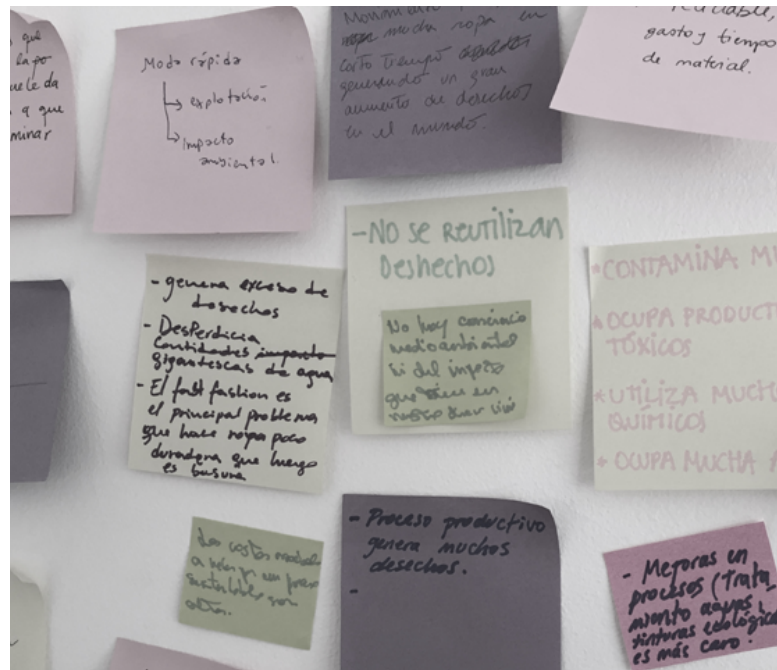 que
la po
le da
a que
minar
Moda rápida
explotación
impacto
ambiental.
mucha ropa en
corto tiempo
generando un gran
aumento de desechos
en el mundo.
gasto y tiempo
de material.
- genera exceso de
desechos
- Desperdicia
cantidades
gigantescas de agua
- El fast fashion es
el principal problema
que hace ropa poco
duradera que luego
es basura
- NO se reutilizan
Deshechos
No hay
medioambiental
ni del impacto
que
*CONTAMINA
*OCUPA PRODUCT
TÓXICOS
*UTILIZA MUCH
QUÍMICOS
*OCUPA MUCHA A
Los costos
a
sustentable son
altos.
- Proceso productivo
genera muchos
desechos.
-
- Mejoras en
procesos (Trata
miento aguas,
tinturas ecológica
es más caro.